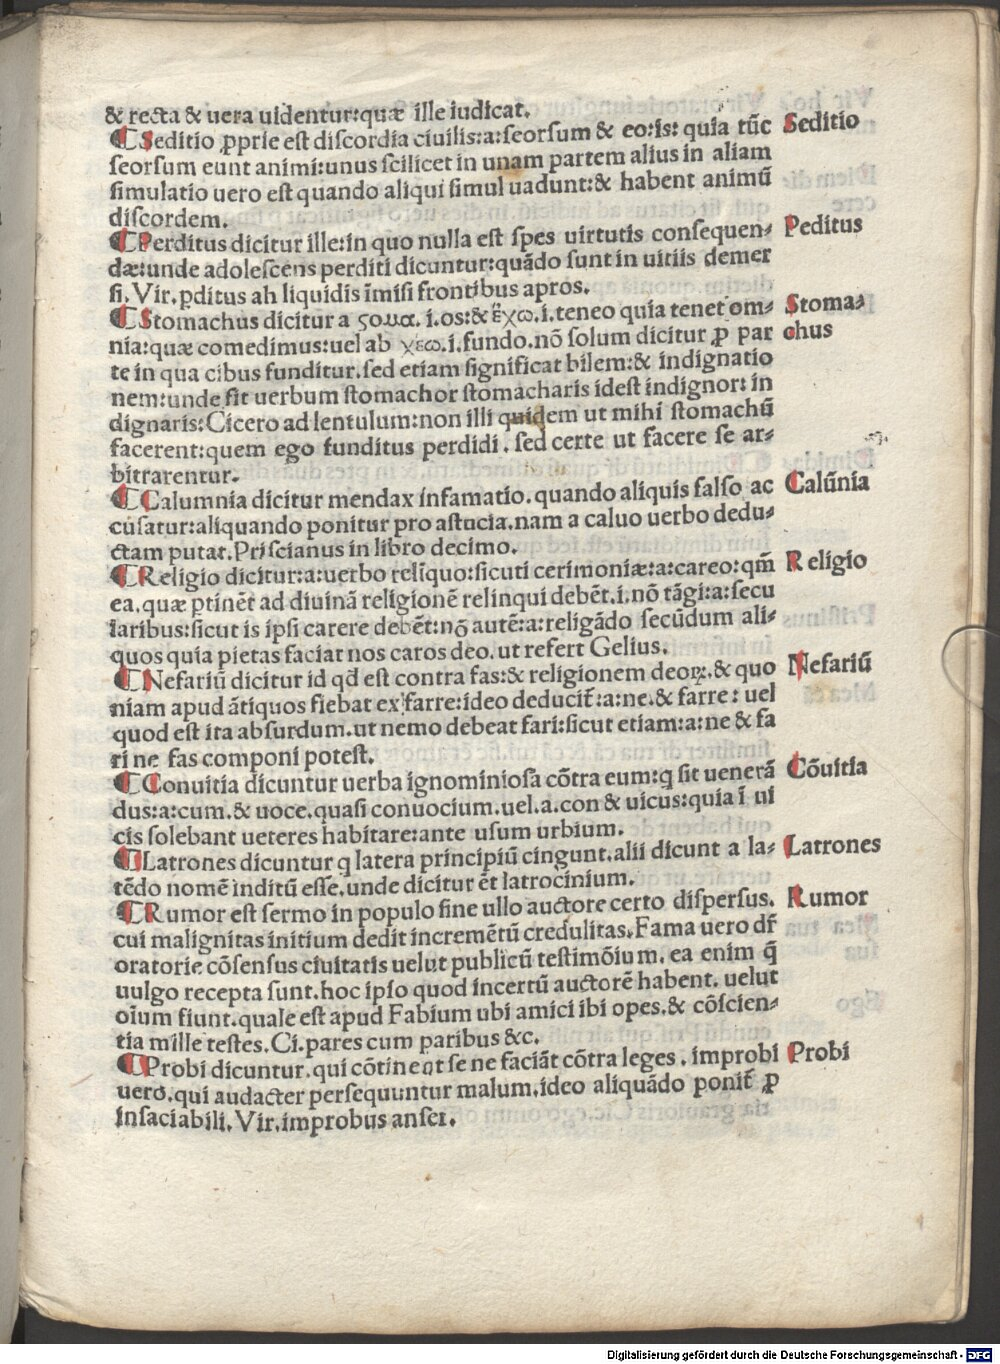 & recta & uera uidentur:quæ ille iudicat.
¶Seditio ꝓprie est discordia ciuilis:a:seorsum & eo:is: quia tũc Seditio
seorsum eunt animi:unus scilicet in unam partem alius in aliam
simulatio uero est quando aliqui simul uadunt:& habent animũ
discordem.
¶Perditus dicitur ille:in quo nulla est spes uirtutis consequen- Peditus
dæ:unde adolescens perditi dicuntur:quãdo sunt in uitiis demer
si. Vir. ꝑditus ah liquidis ĩmisi frontibus apros.
¶Stomachus dicitur a ϛομα. i. os:& ἔχω. i. teneo quia tenet om- Stoma-
nia:quæ comedimus:uel ab χέω. i. fundo. nõ solum dicitur ꝓ par chus
te in qua cibus funditur. sed etiam significat bilem:& indignatio
nem:unde fit uerbum stomachor stomacharis idest indignor: in
dignaris:Cicero ad lentulum:non illi quidem ut mihi stomachũ
facerent:quem ego funditus perdidi. sed certe ut facere se ar-
bitrarentur.
¶Calumnia dicitur mendax infamatio. quando aliquis falso ac Calũnia
cusatur:aliquando ponitur pro astucia. nam a caluo uerbo dedu-
ctam putat. Priscianus in libro decimo.
¶Religio dicitur:a:uerbo relĩquo:sicuti cerimoniæ:a:careo:qm̃ Religio
ea. quæ ꝑtinẽt ad diuinã religionẽ relinqui debẽt. i. nõ tãgi:a:secu
laribus:sicut is ipsi carere debẽt:nõ autẽ:a:religãdo secũdum ali-
quos quia pietas faciat nos caros deo. ut refert Gelius.
¶Nefariũ dicitur id qd est contra fas:& religionem deoꝝ. & quo Nefariũ
niam apud ãtiquos fiebat ex farre:ideo deducit̃:a:ne. & farre: uel
quod est ita absurdum. ut nemo debeat fari:sicut etiam:a:ne & fa
ri ne fas componi potest.
¶Conuitia dicuntur uerba ignominiosa cõtra eum:q sit uenerã Cõuitia
dus:a:cum. & uoce. quasi conuocium. uel. a. con & uicus:quia ĩ ui
cis solebant ueteres habitare:ante usum urbium.
¶Latrones dicuntur q latera principiũ cingunt. alii dicunt a la- Latrones
tẽdo nomẽ inditũ esse. unde dicitur ẽt latrocinium.
¶Rumor est sermo in populo sine ullo auctore certo dispersus. Rumor
cui malignitas initium dedit incremẽtũ credulitas. Fama uero dr̃
oratorie cõsensus ciuitatis uelut publicũ testimõium. ea enim q̃
uulgo recepta sunt. hoc ipso quod incertũ auctorẽ habent. uelut
oĩum fiunt. quale est apud Fabium ubi amici ibi opes. & cõscien-
tia mille testes. Ci. pares cum paribus &c.
¶Probi dicuntur. qui cõtineat se ne faciãt cõtra leges. improbi Probi
uero. qui audacter persequuntur malum. ideo aliquãdo ponit̃ ꝓ
insaciabili. Vir. improbus anser.
Digitalisierung gefördert durch die Deutsche Forschungsgemeinschaft - DFG